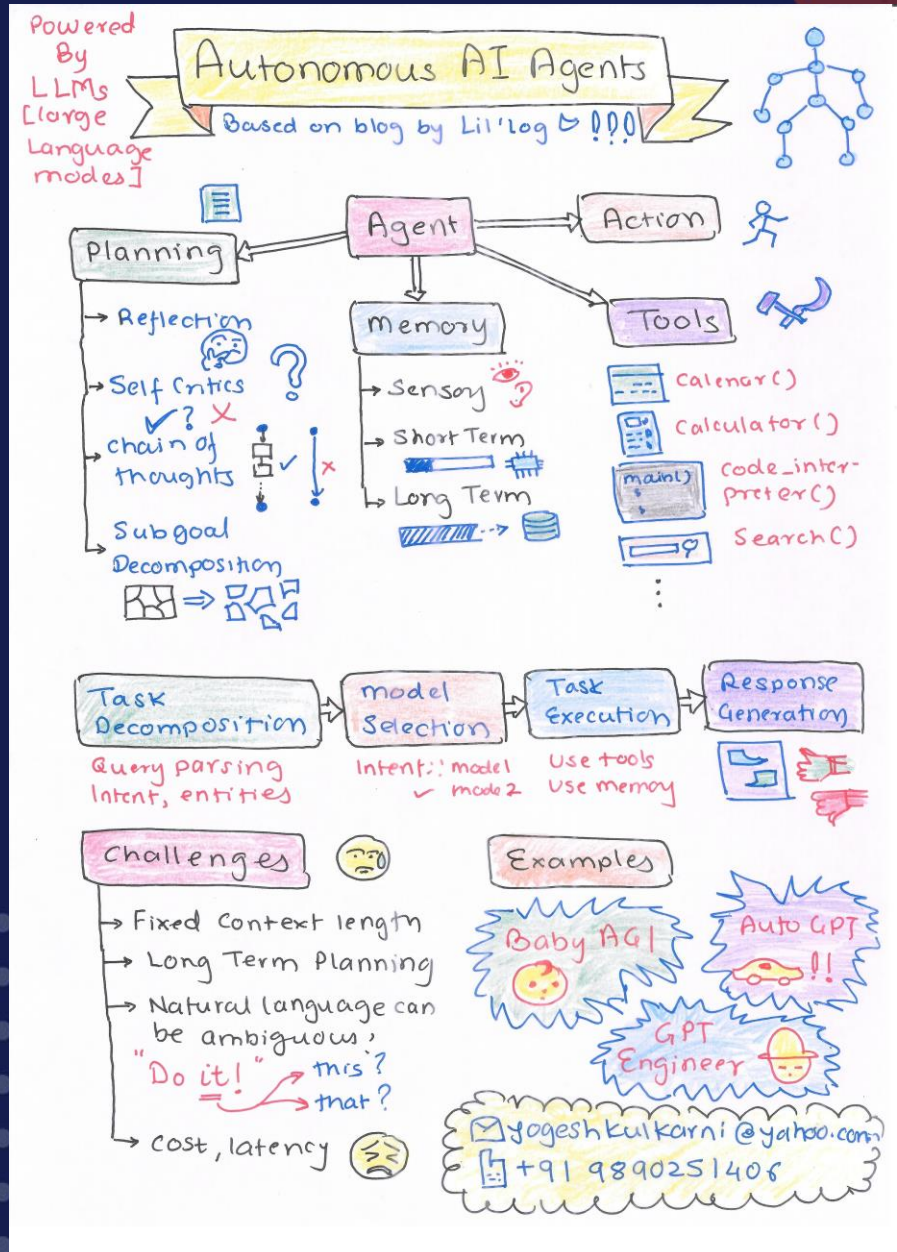 Powered
By
LLMs
[large
Language
modes]
Autonomous AI Agents
Based on blog by Lil'log !!!
Agent
Action
Planning
Reflection
Self Critics
? 
chain of
thoughts
Subgoal
Decomposition
Memory
Sensory
Short Term
Long Term
Tools
Calenar()
Calculator()
main()
code_inter-
preter()
Search()
Task
Decomposition
Query parsing
Intent, entities
model
Selection
Intent:: model1
✓ mode2
Task
Execution
Use tools
Use memory
Response
Generation
Challenges
Fixed Context length
Long Term Planning
Natural language can
be ambiguous,
"Do it!"
this?
that?
cost, latency
Examples
Baby AGI
Auto GPT
!!
GPT
Engineer
yogeshkulkarni@yahoo.com
+91 9890251406